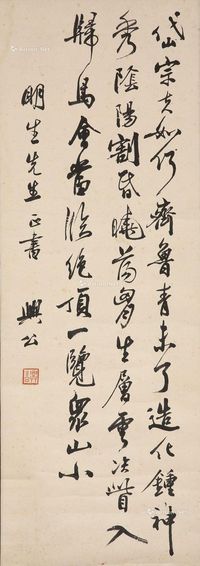 岱宗夫如何齊魯青未了造化鍾神
秀陰陽割昏曉蕩胸生層雲決眥入
歸鳥會當臨絕頂一覽眾山小
明生先生正書 興公